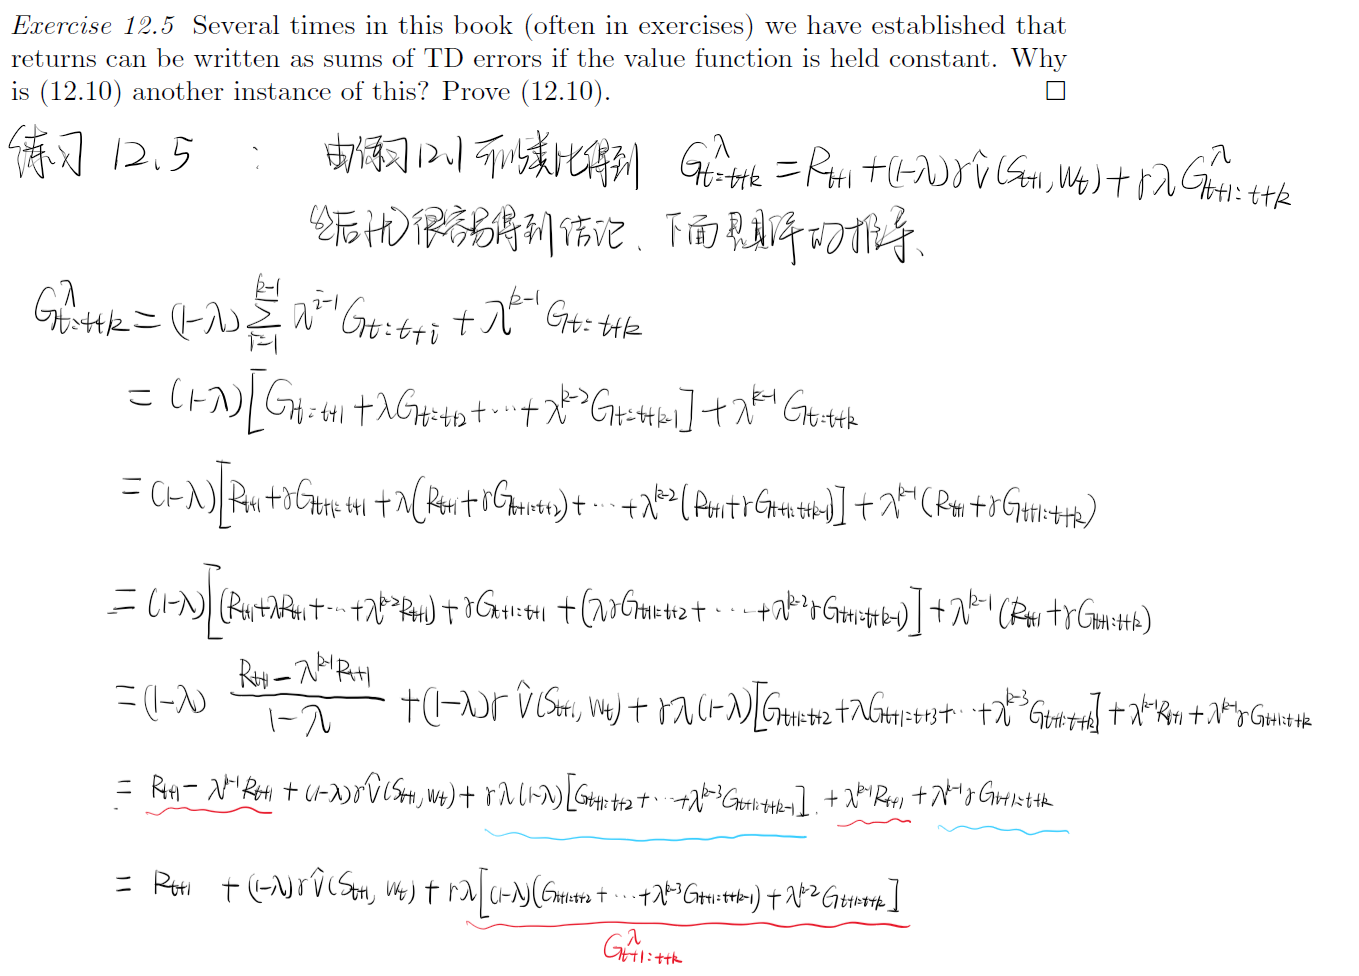 Exercise 12.5 Several times in this book (often in exercises) we have established that
returns can be written as sums of TD errors if the value function is held constant. Why
is (12.10) another instance of this? Prove (12.10). □
练习 12.5 : 由练习12.1 可以类比得到 G^λ_{t:t+k} = R_{t+1} + (1-λ)γ v̂(S_{t+1}, w_t) + γλ G^λ_{t+1:t+k}
然后就很容易得到结论、下面是具体的推导、
G^λ_{t:t+k} = (1-λ) Σ_{i=1}^{k-1} λ^{i-1} G_{t:t+i} + λ^{k-1} G_{t:t+k}
= (1-λ)[G_{t:t+1} + λG_{t:t+2} + ··· + λ^{k-2} G_{t:t+k-1}] + λ^{k-1} G_{t:t+k}
= (1-λ)[R_{t+1} + γG_{t+1:t+1} + λ(R_{t+1} + γG_{t+1:t+2}) + ··· + λ^{k-2}(R_{t+1} + γG_{t+1:t+k-1})] + λ^{k-1}(R_{t+1} + γG_{t+1:t+k})
= (1-λ)[(R_{t+1} + λR_{t+1} + ··· + λ^{k-2}R_{t+1}) + γG_{t+1:t+1} + (λγG_{t+1:t+2} + ··· + λ^{k-2}γG_{t+1:t+k-1})] + λ^{k-1}(R_{t+1} + γG_{t+1:t+k})
= (1-λ) (R_{t+1} - λ^{k-1}R_{t+1})/(1-λ) + (1-λ)γ v̂(S_{t+1}, w_t) + γλ(1-λ)[G_{t+1:t+2} + λG_{t+1:t+3} + ··· + λ^{k-3}G_{t+1:t+k}] + λ^{k-1}R_{t+1} + λ^{k-1}γG_{t+1:t+k}
= R_{t+1} - λ^{k-1}R_{t+1} + (1-λ)γ v̂(S_{t+1}, w_t) + γλ(1-λ)[G_{t+1:t+2} + ··· + λ^{k-3}G_{t+1:t+k-1}] + λ^{k-1}R_{t+1} + λ^{k-1}γG_{t+1:t+k}
= R_{t+1} + (1-λ)γ v̂(S_{t+1}, w_t) + γλ[(1-λ)(G_{t+1:t+2} + ··· + λ^{k-3}G_{t+1:t+k-1}) + λ^{k-2}G_{t+1:t+k}]
G^λ_{t+1:t+k}